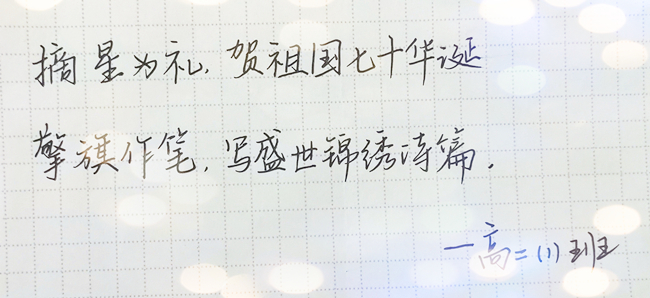 摘星为礼,贺祖国七十华诞
擎旗作笔,写盛世锦绣诗篇.
一高二(1)班